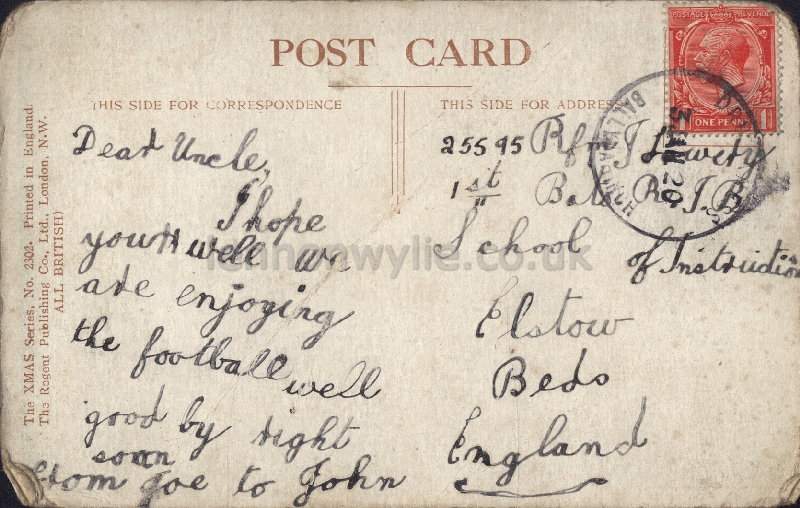 POST CARD
THIS SIDE FOR CORRESPONDENCE
THIS SIDE FOR ADDRESS
POSTAGE REVENUE
ONE PENNY
3 JA 20
The XMAS Series, No. 2302. Printed in England.
The Regent Publishing Co., Ltd., London, N.W.
ALL BRITISH)
Dear Uncle,
I hope
your well we
are enjoging
the football well
good by right
soon
from Joe to John
25595 Rfn J Lowery
1st Batt R. I. R
School
of Instruction
Elstow
Beds
England
lennonwylie.co.uk